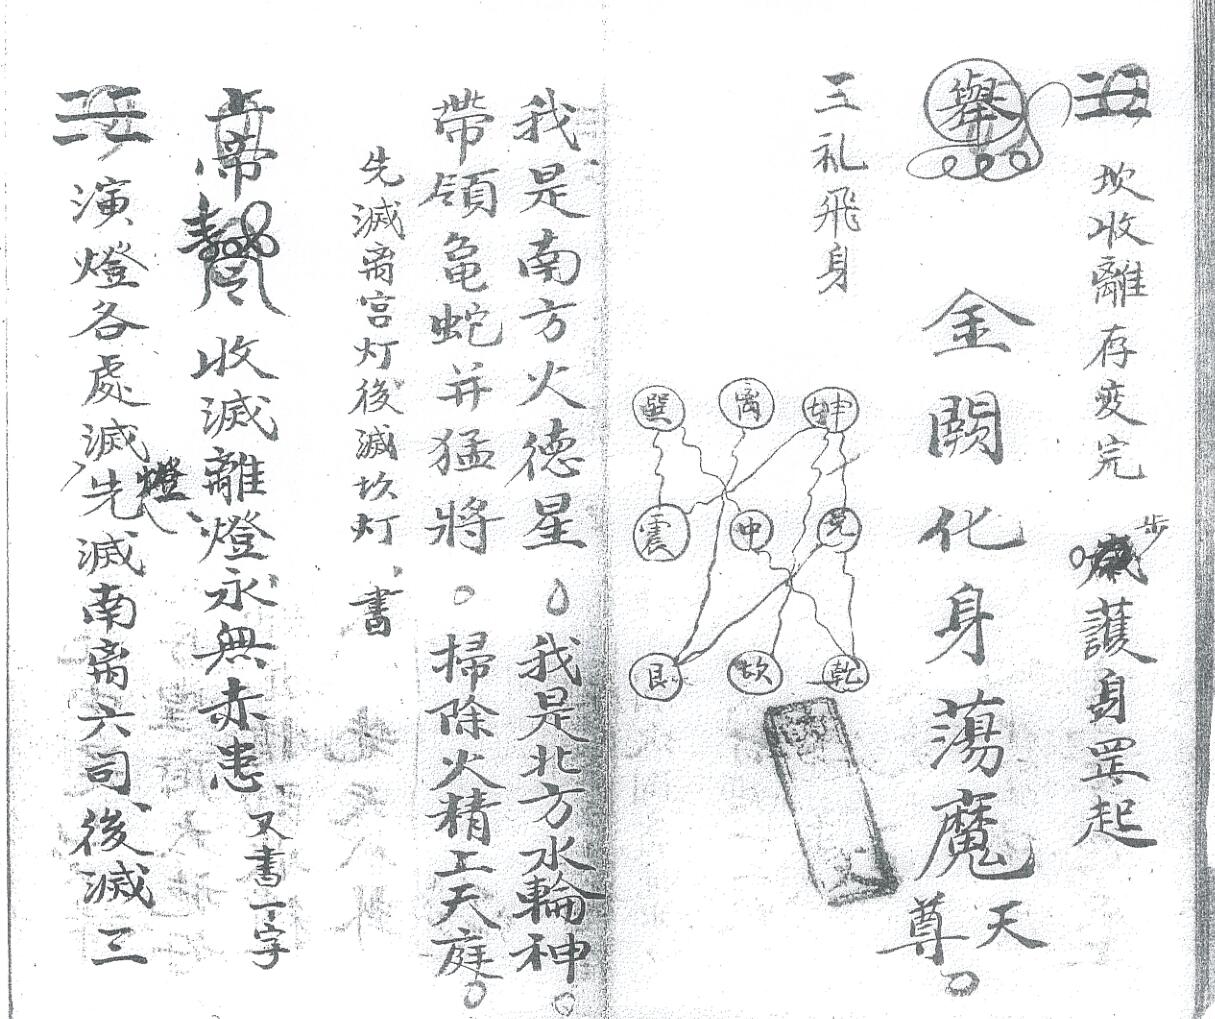 坎收離存变完 步護身罡起
舉 金闕化身蕩魔天尊。
三礼飛身
巽 离 坤
震 中 兑
艮 坎 乾
我是南方火德星。我是北方水輪神。
帶領龟蛇并猛將。掃除火精上天庭。
先滅离宫灯後滅坎灯 書
上帝 收滅離燈永無赤患 又書一字
演燈各處滅燈先滅南离六司後滅三